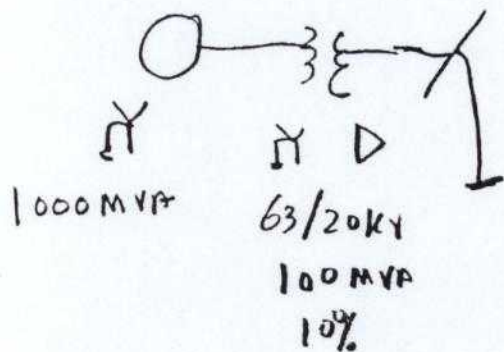 1000 MVA
63/20KV
100 MVA
10%